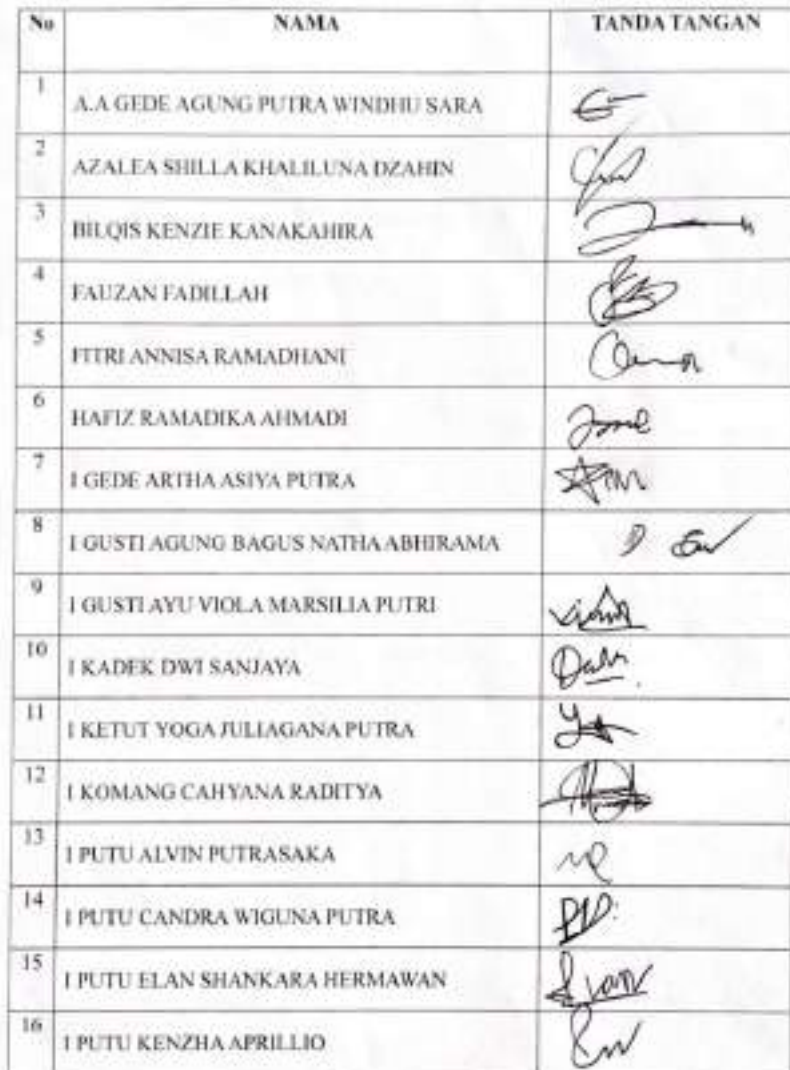 No NAMA TANDA TANGAN
1 A.A GEDE AGUNG PUTRA WINDHU SARA
2 AZALEA SHILLA KHALILUNA DZAHIN
3 BILQIS KENZIE KANAKAHIRA
4 FAUZAN FADILLAH
5 FITRI ANNISA RAMADHANI
6 HAFIZ RAMADIKA AHMADI
7 I GEDE ARTHA ASIYA PUTRA
8 I GUSTI AGUNG BAGUS NATHA ABHIRAMA
9 I GUSTI AYU VIOLA MARSILIA PUTRI
10 I KADEK DWI SANJAYA
11 I KETUT YOGA JULIAGANA PUTRA
12 I KOMANG CAHYANA RADITYA
13 I PUTU ALVIN PUTRASAKA
14 I PUTU CANDRA WIGUNA PUTRA
15 I PUTU ELAN SHANKARA HERMAWAN
16 I PUTU KENZHA APRILLIO